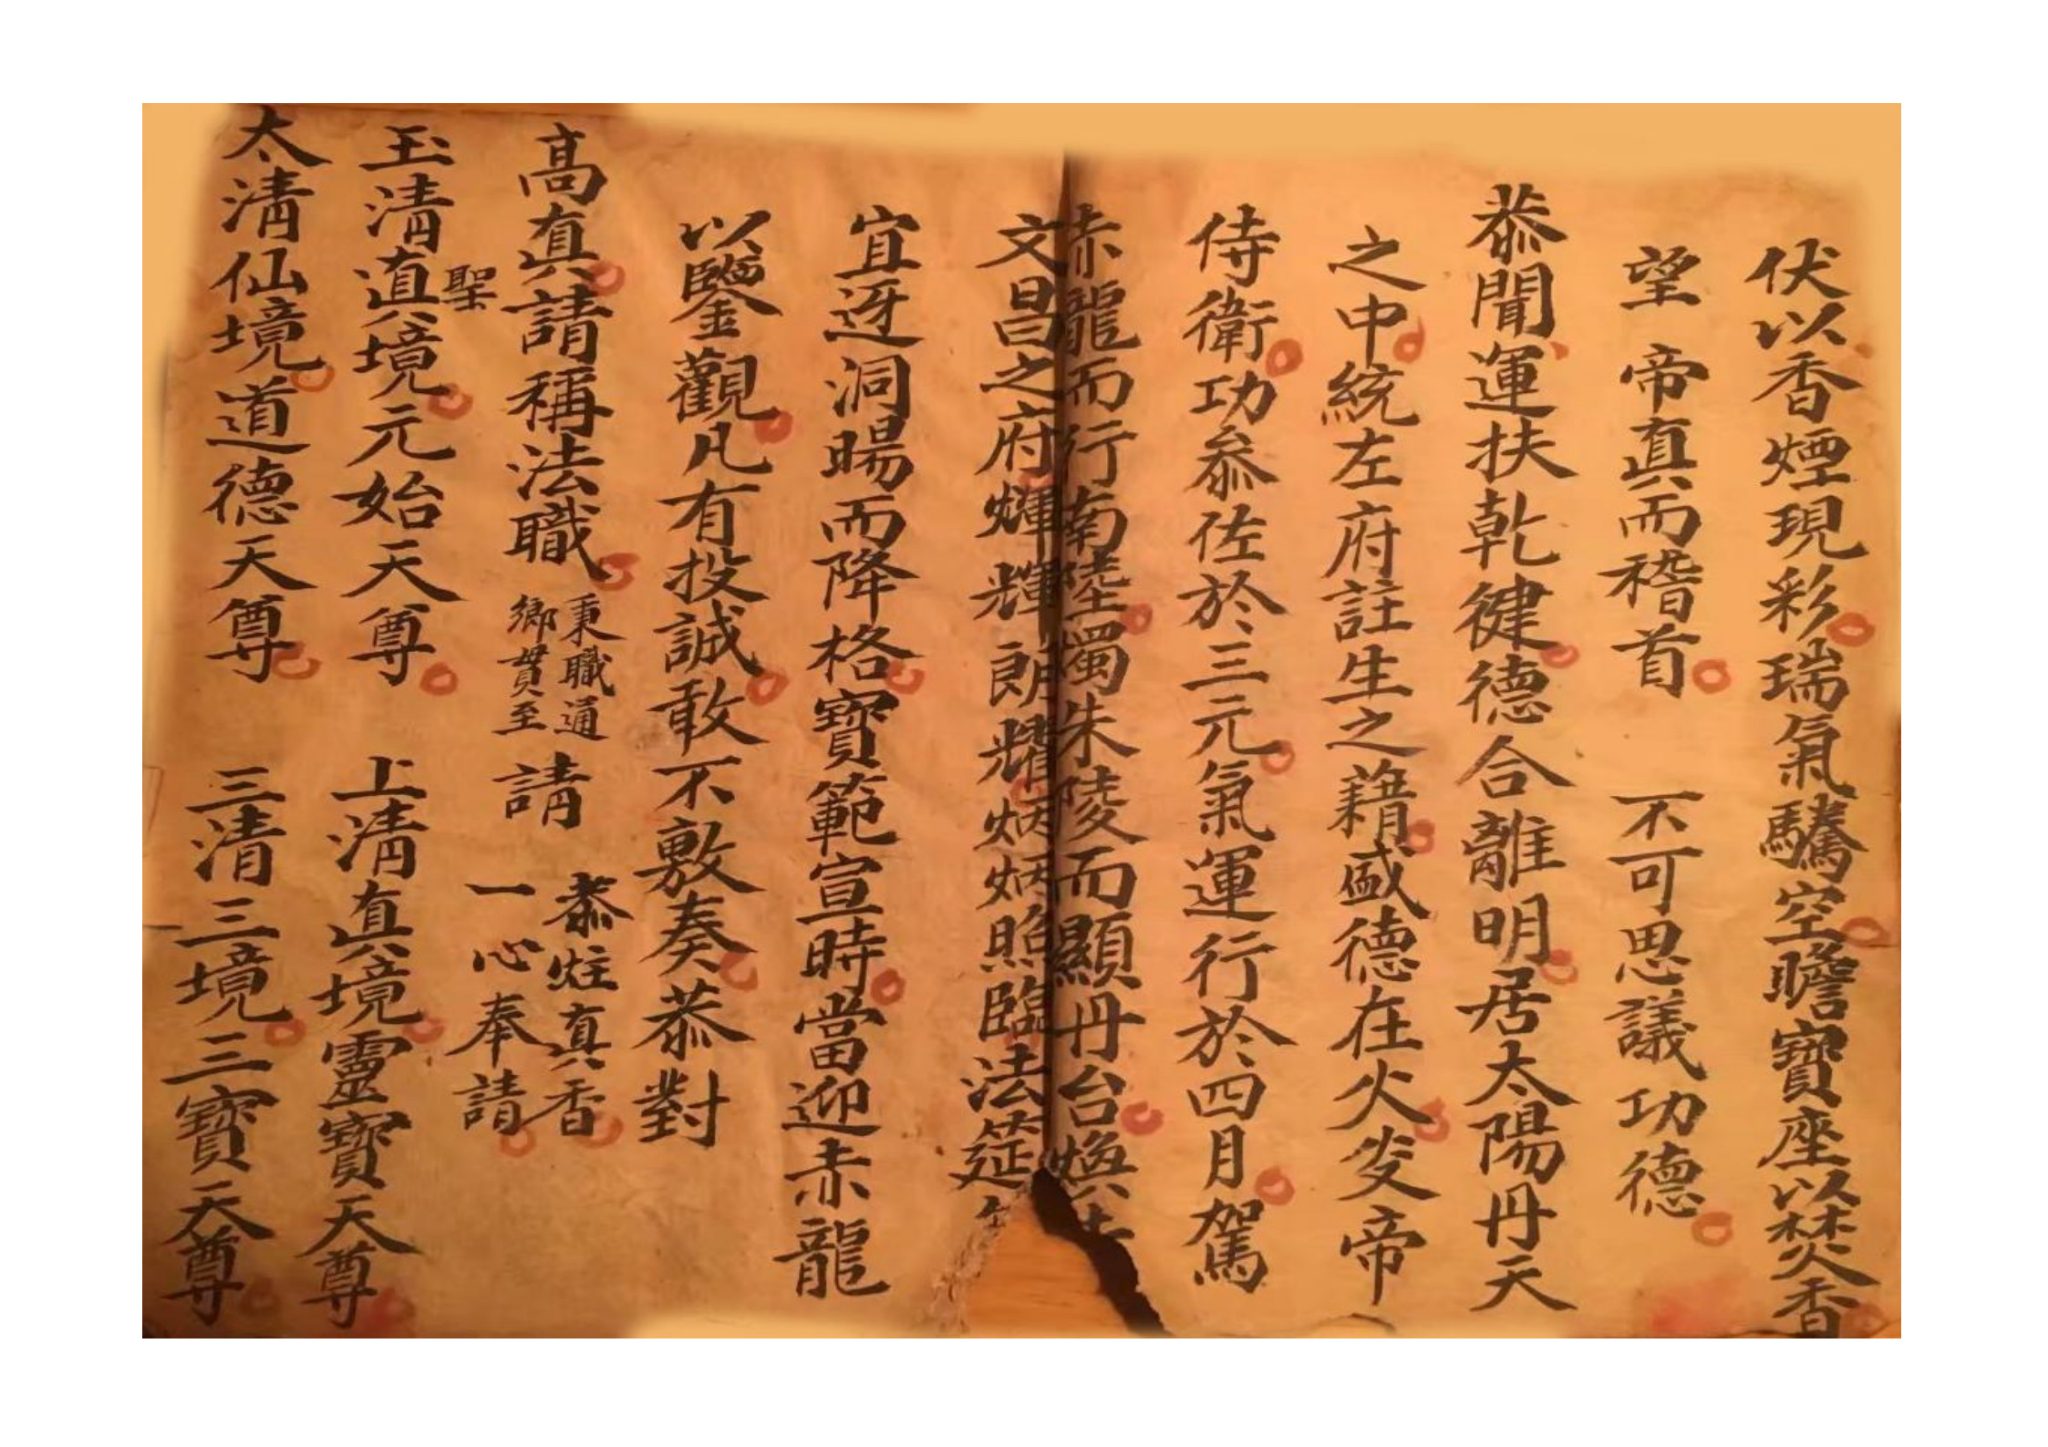 伏以香煙現彩瑞氣騰空瞻寶座以焚香
望 帝真而稽首 不可思議功德
恭聞運扶乾健德合離明居太陽丹天
之中統左府註生之藉盛德在火炎帝
侍衛功叅佐於三元氣運行於四月駕
赤龍而行南陸燭朱陵而顯丹台煥
文昌之府輝輝朗耀炳炳照臨法筵
宜迓洞暘而降格寶範宣時當迎赤龍
以鑒觀凡有投誠敢不敷奏恭對
高真請稱法職 秉職通鄉貫至 請 恭炷真香一心奉請
聖
玉清真境元始天尊 上清真境靈寶天尊
太清仙境道德天尊 三清三境三寶天尊